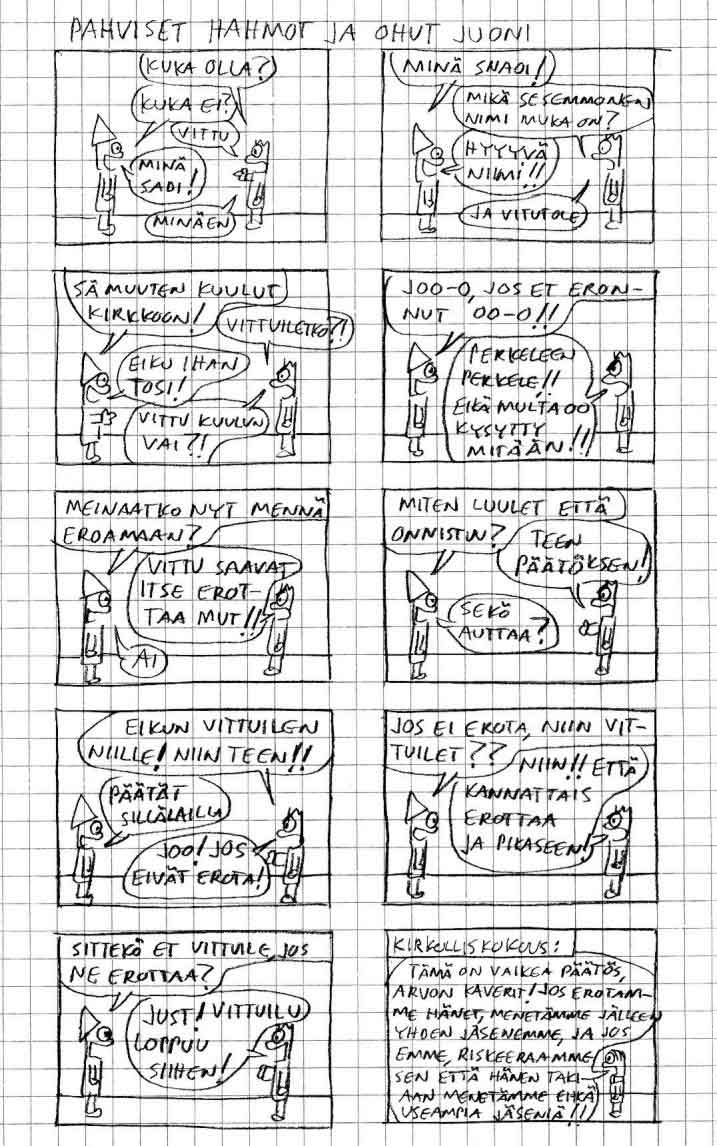 PAHVISET HAHMOT JA OHUT JUONI
KUKA OLLA?
KUKA EI?
VITTU
MINÄ
SADI!
MINÄEN
MINÄ SNADI!
MIKÄ SESEMMONEN
NIMI MUKA ON?
HYYYVÄ
NIIMI!!
JA VITUTOLE
SÄ MUUTEN KUULUT
KIRKKOON!
VITTUILETKO?!
EIKU IHAN
TOSI!
VITTU KUULUN
VAI?!
JOO-O, JOS ET ERON-
NUT OO-O!!
PERKELEEN
PERKELE!!
EIKÄ MULTA OO
KYSYTTY
MITÄÄN!!
MEINAATKO NYT MENNÄ
EROAMAAN?
VITTU SAAVAT
ITSE EROT-
TAA MUT!!
AI
MITEN LUULET ETTÄ
ONNISTUN?
TEEN
PÄÄTÖKSEN!
SEKÖ
AUTTAA?
EIKUN VITTUILEN
NIILLE! NIIN TEEN!!
PÄÄTÄT
SILLÄLAILLA
JOO! JOS
EIVÄT EROTA!
JOS EI EROTA, NIIN VIT-
TUILET??
NIIN!! ETTÄ
KANNATTAIS
EROTTAA
JA PIKASEEN!
SITTEKÖ ET VITTUILE, JOS
NE EROTTAA?
JUST! VITTUILU
LOPPUU
SIIHEN!
KIRKOLLISKOKOUS:
TÄMÄ ON VAIKEA PÄÄTÖS,
ARVON KAVERIT! JOS EROTAM-
ME HÄNET, MENETÄMME JÄLLEEN
YHDEN JÄSENEMME, JA JOS
EMME, RISKEERAAMME
SEN ETTÄ HÄNEN TAKI-
AAN MENETÄMME EHKÄ
USEAMPIA JÄSENIÄ!!